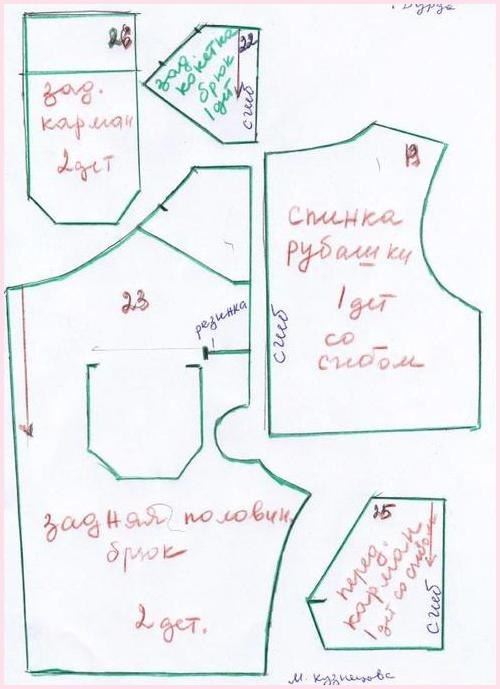 Бурда
26
зад.
карман
2 дет
22
зад.
кокетка
брюк
1 дет
сгиб
19
спинка
рубашки
1 дет
со
сгибом
сгиб
23
резинка
задняя половин.
брюк
2 дет.
25
перед.
карман
1 дет со сгибом
сгиб
М. Кузнецова